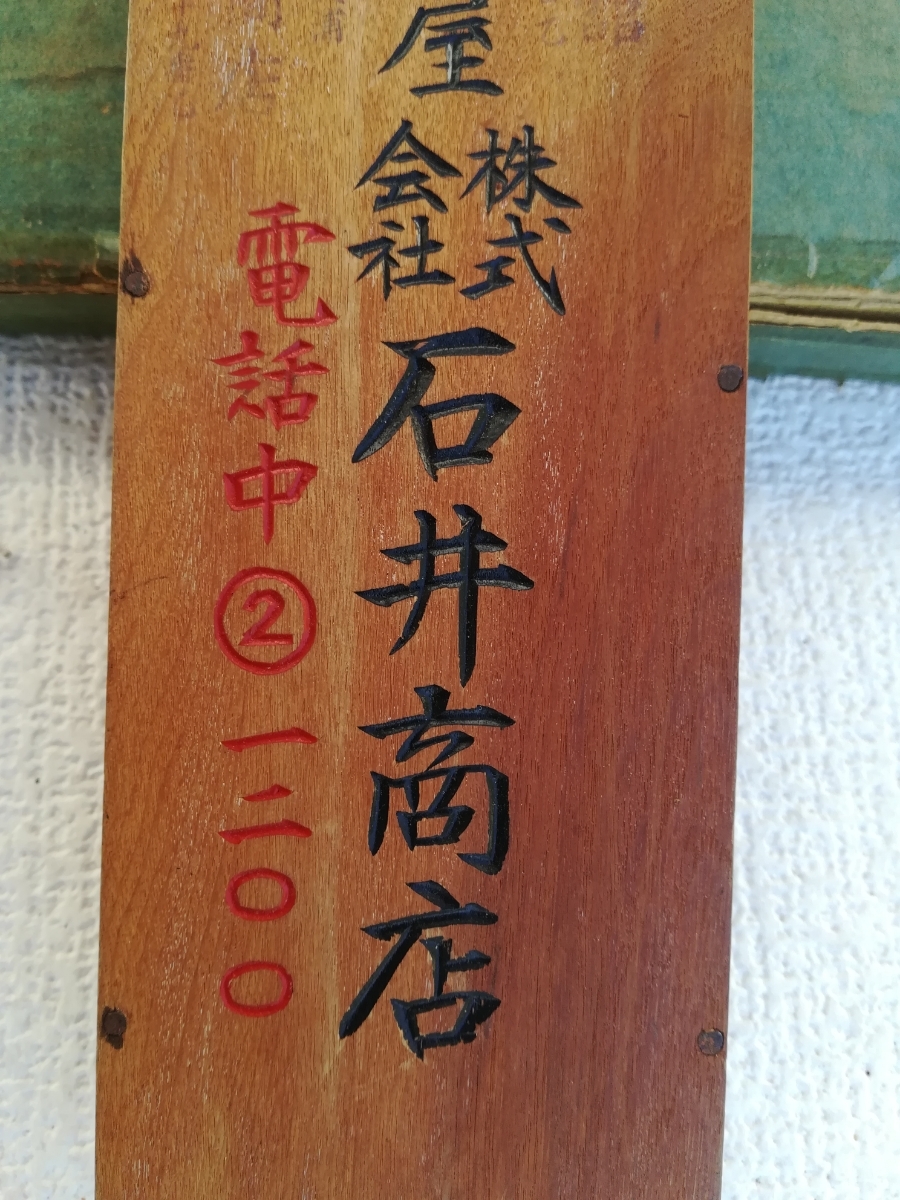 屋
株式
会社
石井商店
電話中②一二〇〇